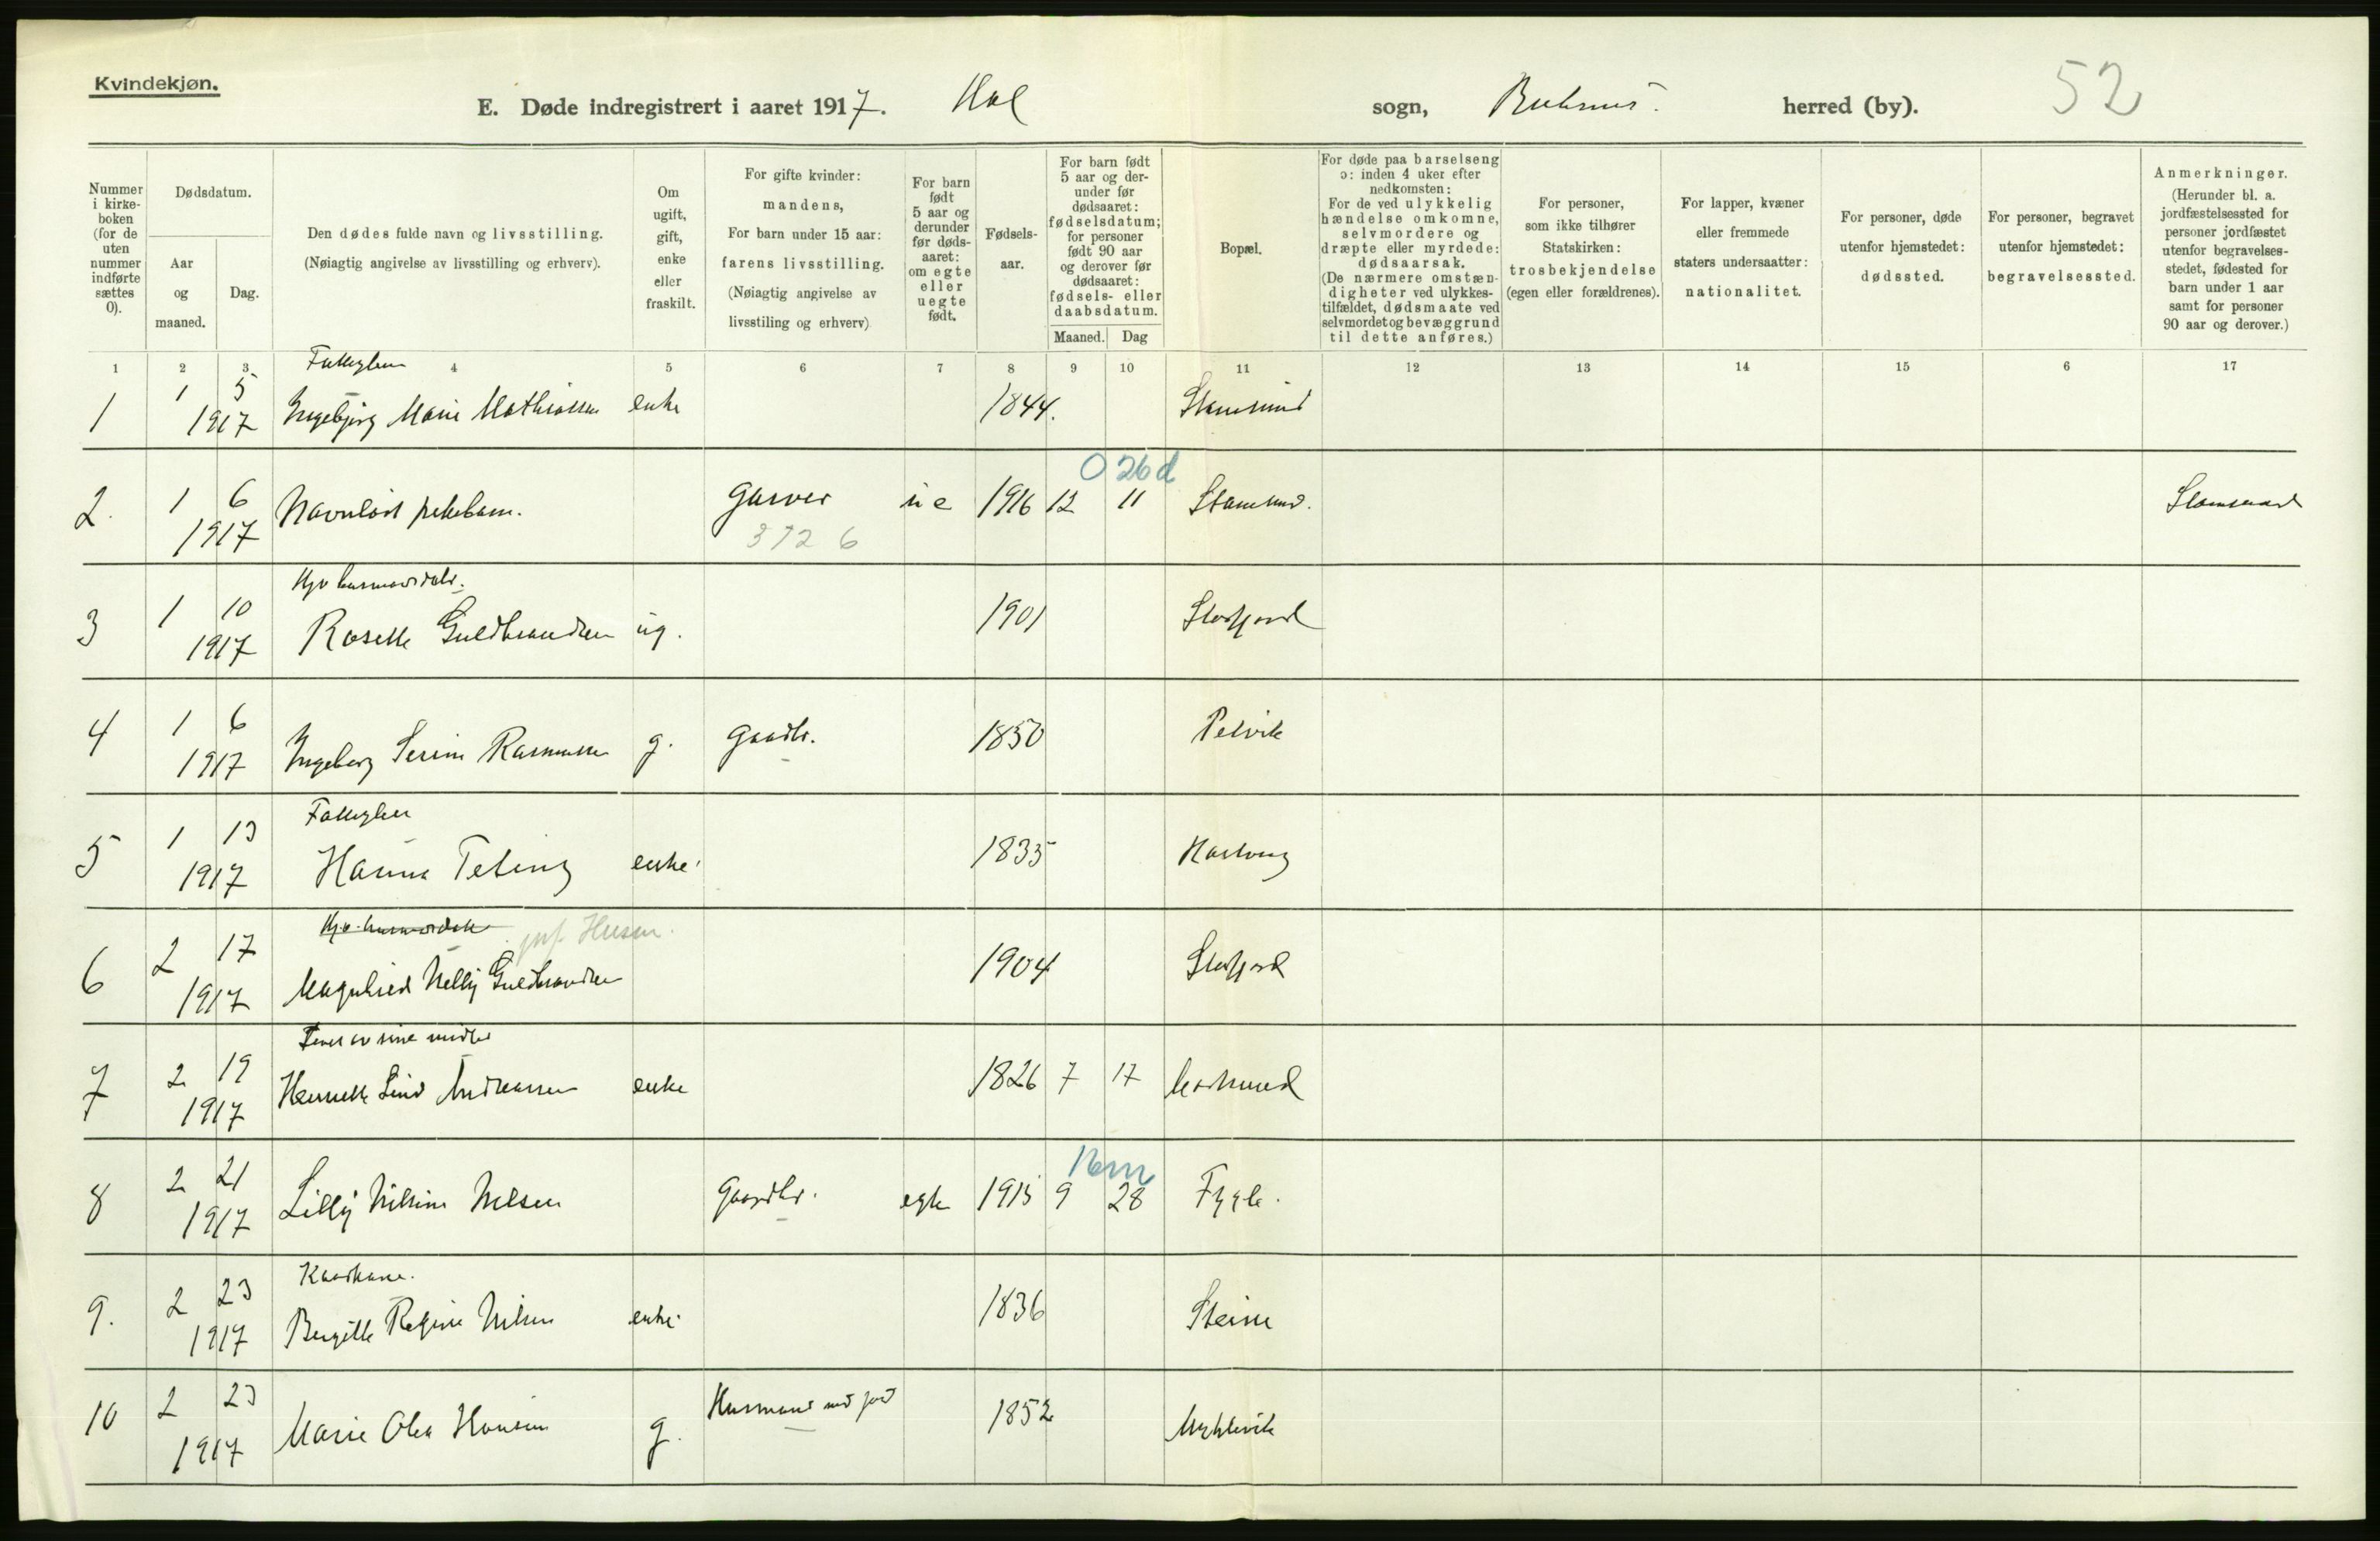 Kvindekjøn.
E. Døde indregistrert i aaret 1917. Hol sogn, Buksnes. herred (by). 52
Nummer i kirkeboken (for de uten nummer indførte sættes 0).
Dødsdatum.
Aar og maaned.
Dag.
Den dødes fulde navn og livsstilling.
(Nøiagtig angivelse av livsstilling og erhverv).
Om ugift, gift, enke eller fraskilt.
For gifte kvinder: mandens,
For barn under 15 aar: farens livsstilling.
(Nøiagtig angivelse av livsstiling og erhverv)
For barn født 5 aar og derunder før dødsaaret: om egte eller uegte født.
Fødselsaar.
For barn født 5 aar og derunder før dødsaaret: fødselsdatum; for personer født 90 aar og derover før dødsaaret: fødsels- eller daabsdatum.
Maaned. Dag
Bopæl.
For døde paa barselseng ɔ: inden 4 uker efter nedkomsten:
For de ved ulykkelig hændelse omkomne, selvmordere og dræpte eller myrdede: dødsaarsak.
(De nærmere omstændigheter ved ulykkestilfældet, dødsmaate ved selvmordet og bevæggrund til dette anføres.)
For personer, som ikke tilhører Statskirken: trosbekjendelse (egen eller forældrenes).
For lapper, kvæner eller fremmede staters undersaatter: nationalitet.
For personer, døde utenfor hjemstedet: dødssted.
For personer, begravet utenfor hjemstedet: begravelsessted.
Anmerkninger.
(Herunder bl. a. jordfæstelsessted for personer jordfæstet utenfor begravelsesstedet, fødested for barn under 1 aar samt for personer 90 aar og derover.)
1 2 3 4 5 6 7 8 9 10 11 12 13 14 15 6 17
1 1 5 1917 Ingebjørg Marie Mathiassen enke 1844. Stamsund
0 26d
2. 1 6 1917 Navnløst pikebarn. Garver ue 1916 12 11 Stamsund. Stamsund
3726
3 1 10 1917 Roselle Guldbrandsen ug. 1901 Storfjord
4 1 6 1917 Ingeborg Serine Rasmussen g. Gaardbr. 1850 Petvik
5 1 13 1917 Hanna Teting enke 1835
6 2 17 1917 Nelly Guldbrandsen 1904 Storfjord
Lever av sine midler
7 2 19 1917 Lind Andreassen enke 1826 7 17 Mortsund
16m
8 2 21 1917 Lilly Nilsine Nilsen Gaardbr. egte 1915 9 28 Fygle.
Kaarkone.
9. 2 23 1917 Bergitte Regine Nilsen enke 1836 Steine
10 2 23 1917 Marie Olea Hansen g. Husmand med jord 1852 Myklevik